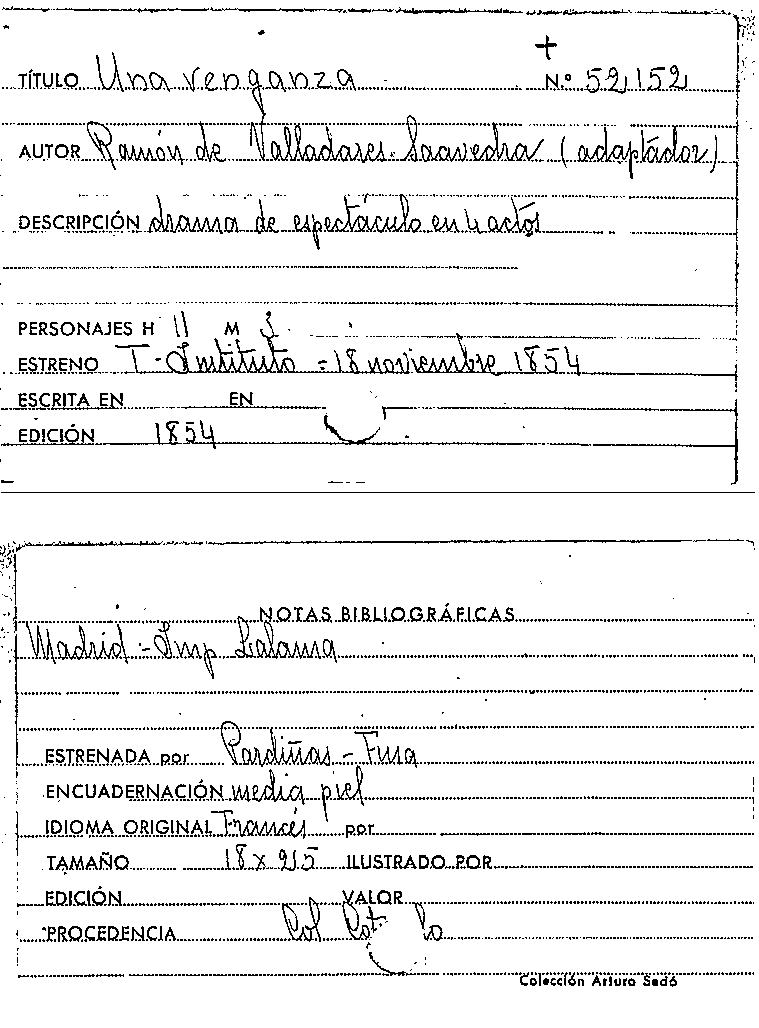 TÍTULO Una venganza N.º 52152
AUTOR Ramón de Valladares Saavedra (adaptador)
DESCRIPCIÓN drama de espectáculo en 4 actos
PERSONAJES H 11 M 3
ESTRENO T. Instituto = 18 noviembre 1854
ESCRITA EN EN
EDICIÓN 1854
NOTAS BIBLIOGRÁFICAS
Madrid - Imp Lalama
ESTRENADA por Pardiñas -
ENCUADERNACIÓN media piel
IDIOMA ORIGINAL Francés por
TAMAÑO 18 x ILUSTRADO POR
EDICIÓN VALOR
PROCEDENCIA Col
Colección Arturo Sedó